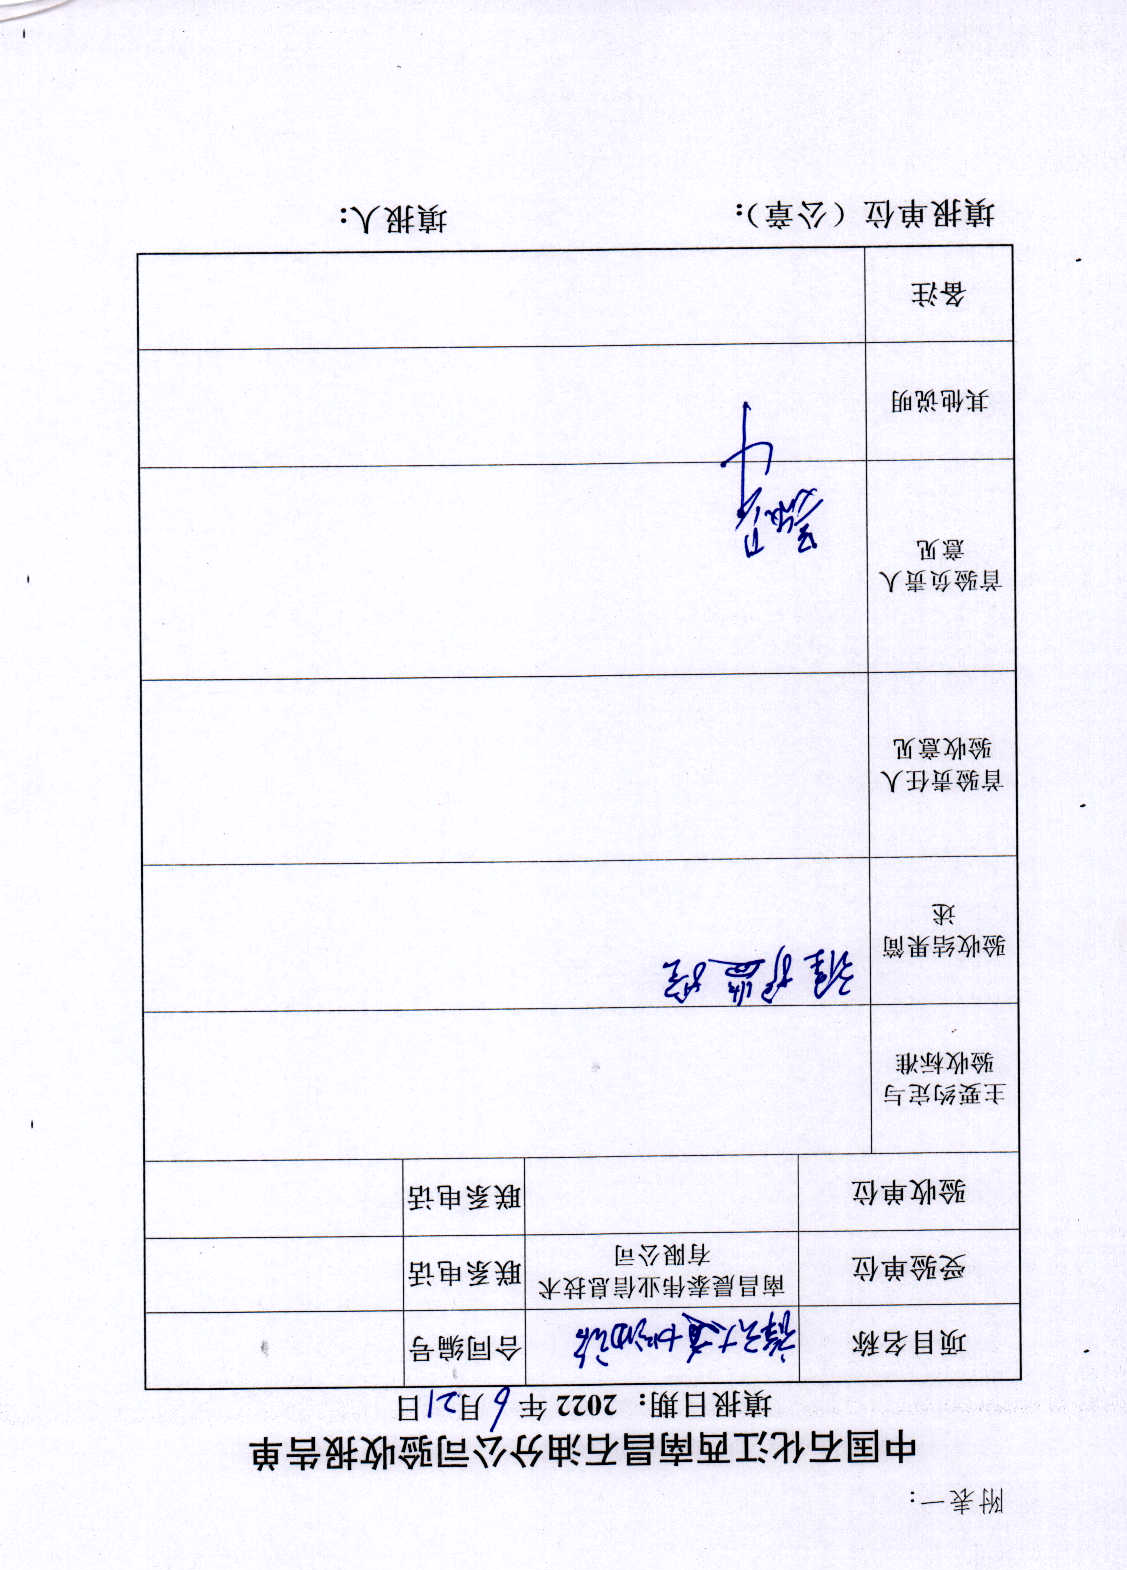 附表一：
中国石化江西南昌石油分公司验收报告单
填报日期：2022年6月21日
项目名称 祥云大道加油站 合同编号
受验单位 南昌晨泰伟业信息技术有限公司 联系电话
验收单位 联系电话
主要约定与
验收标准
验收结果简
述
维护监控
首验责任人
验收意见
首验负责人
意见
其他说明
备注
填报单位（公章）： 填报人：